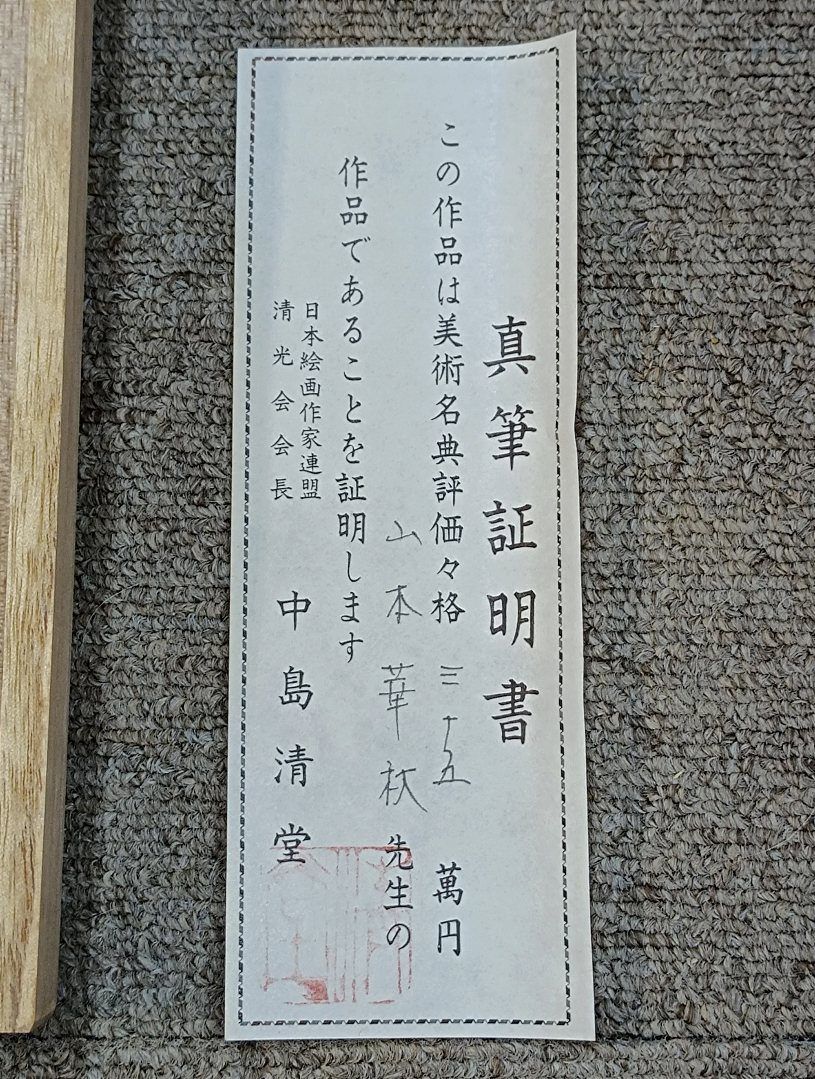 真筆証明書
この作品は美術名典評価々格 三十五 萬円
山本華秋先生の
作品であることを証明します
日本絵画作家連盟
清光会会長
中島清堂